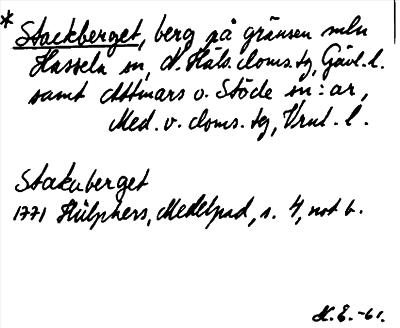 * Stackberget, berg på gränsen mln
Hassela sn, N. Häls. doms. tg, Gävl. l.
samt Attmars o. Stöde sn:ar,
Med. v. doms. tg, Vrnl. l.
Stakaberget
1771 Hülphers, Medelpad, s. 4, not b.
H.E. -61.